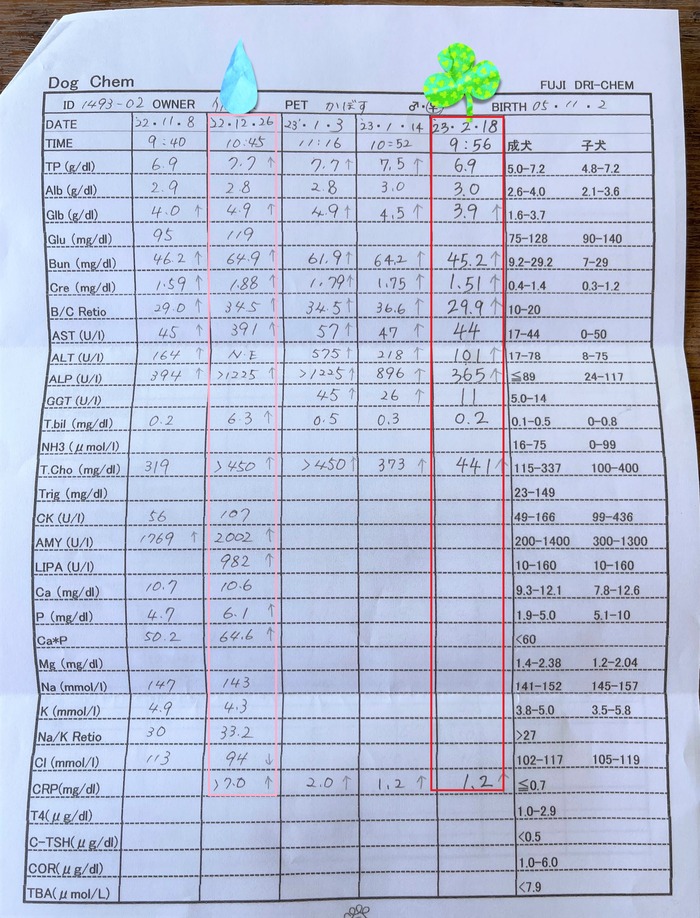 Dog Chem FUJI DRI-CHEM
ID 1493-02 OWNER PET かぼす ♂・♀ BIRTH 05・11・2
DATE 22・11・8 22・12・26 23・1・3 23・1・14 23・2・18
TIME 9:40 10:45 11:16 10:52 9:56 成犬 子犬
TP (g/dl) 6.9 7.7 ↑ 7.7 ↑ 7.5 ↑ 6.9 5.0-7.2 4.8-7.2
Alb (g/dl) 2.9 2.8 2.8 3.0 3.0 2.6-4.0 2.1-3.6
Glb (g/dl) 4.0 ↑ 4.9 ↑ 4.9 ↑ 4.5 ↑ 3.9 ↑ 1.6-3.7
Glu (mg/dl) 95 119 75-128 90-140
Bun (mg/dl) 46.2 ↑ 64.9 ↑ 61.9 ↑ 64.2 ↑ 45.2 ↑ 9.2-29.2 7-29
Cre (mg/dl) 1.59 ↑ 1.88 ↑ 1.79 ↑ 1.75 ↑ 1.51 ↑ 0.4-1.4 0.3-1.2
B/C Retio 29.0 ↑ 34.5 ↑ 34.5 ↑ 36.6 ↑ 29.9 ↑ 10-20
AST (U/l) 45 ↑ 391 ↑ 57 ↑ 47 ↑ 44 17-44 0-50
ALT (U/l) 164 ↑ N.E 575 ↑ 218 ↑ 101 ↑ 17-78 8-75
ALP (U/l) 394 ↑ >1225 ↑ >1225 ↑ 896 ↑ 365 ↑ ≦89 24-117
GGT (U/l) 45 ↑ 26 ↑ 11 5.0-14
T.bil (mg/dl) 0.2 6.3 ↑ 0.5 0.3 0.2 0.1-0.5 0-0.8
NH3 (μmol/l) 16-75 0-99
T.Cho (mg/dl) 319 >450 ↑ >450 ↑ 373 ↑ 441 ↑ 115-337 100-400
Trig (mg/dl) 23-149
CK (U/l) 56 107 49-166 99-436
AMY (U/l) 1769 ↑ 2002 ↑ 200-1400 300-1300
LIPA (U/l) 982 ↑ 10-160 10-160
Ca (mg/dl) 10.7 10.6 9.3-12.1 7.8-12.6
P (mg/dl) 4.7 6.1 ↑ 1.9-5.0 5.1-10
Ca*P 50.2 64.6 ↑ <60
Mg (mg/dl) 1.4-2.38 1.2-2.04
Na (mmol/l) 147 143 141-152 145-157
K (mmol/l) 4.9 4.3 3.8-5.0 3.5-5.8
Na/K Retio 30 33.2 >27
Cl (mmol/l) 113 94 ↓ 102-117 105-119
CRP(mg/dl) >7.0 ↑ 2.0 ↑ 1.2 ↑ 1.2 ↑ ≦0.7
T4(μg/dl) 1.0-2.9
C-TSH(μg/dl) <0.5
COR(μg/dl) 1.0-6.0
TBA(μmol/L) <7.9